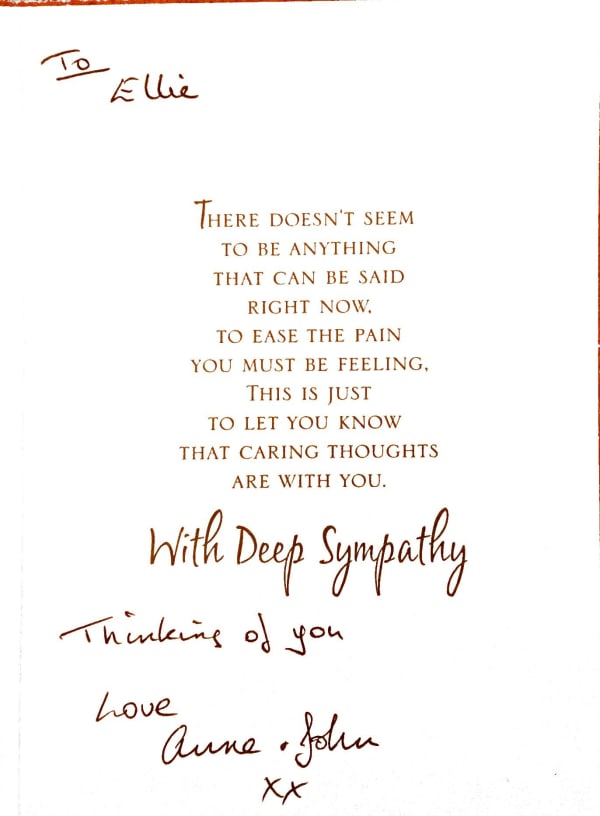 To
Ellie
THERE DOESN'T SEEM
TO BE ANYTHING
THAT CAN BE SAID
RIGHT NOW,
TO EASE THE PAIN
YOU MUST BE FEELING,
THIS IS JUST
TO LET YOU KNOW
THAT CARING THOUGHTS
ARE WITH YOU.
With Deep Sympathy
Thinking of you
Love
Anne . John
xx